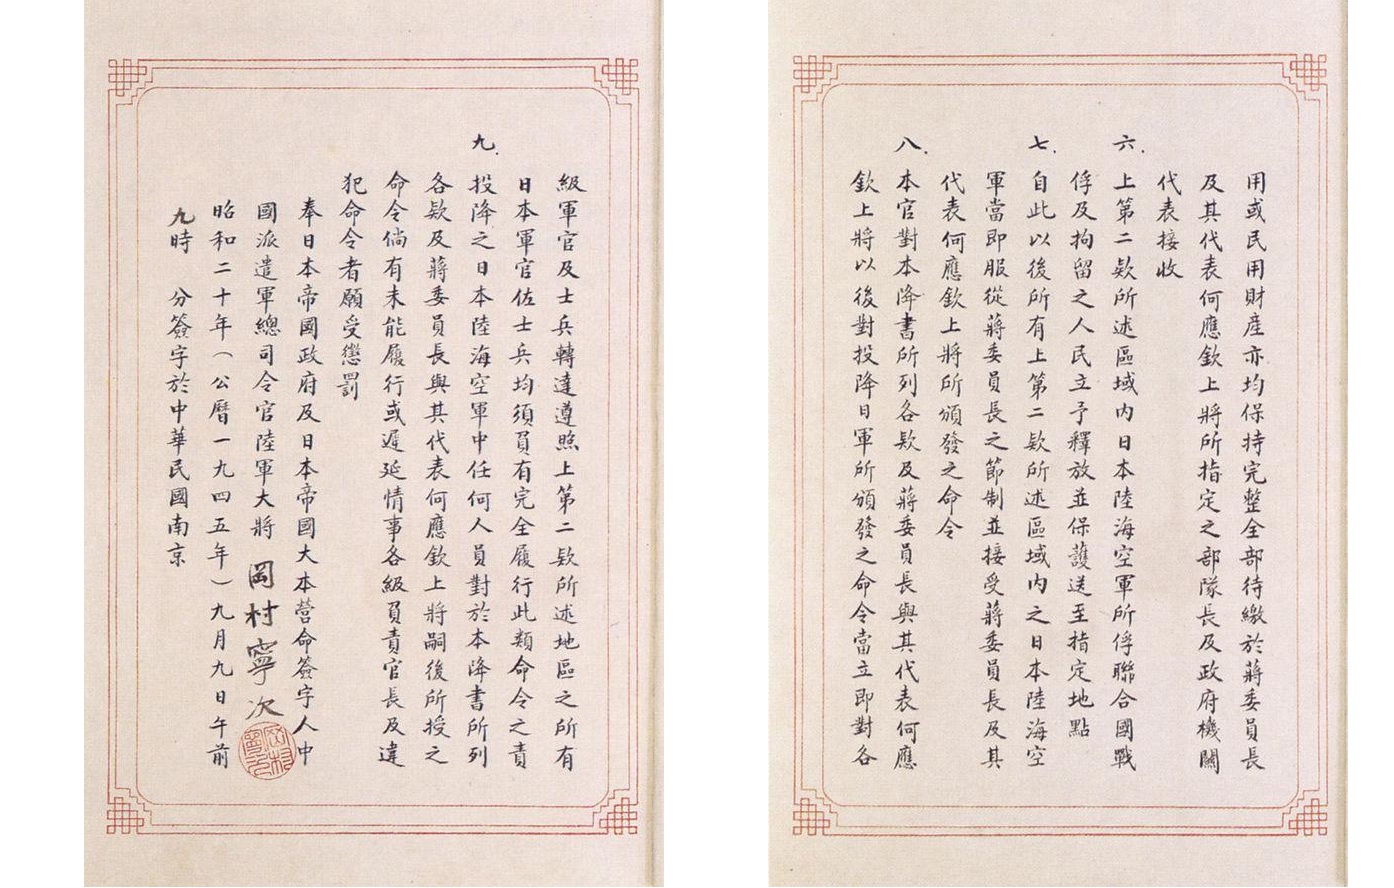 用或民用財產亦均保持完整全部待繳於蔣委員長
及其代表何應欽上將所指定之部隊長及政府機關
代表接收
六.上第二欵所述區域内日本陸海空軍所俘聯合國戰
俘及拘留之人民立予釋放並保護送至指定地點
七.自此以後所有上第二欵所述區域内之日本陸海空
軍當即服從蔣委員長之節制並接受蔣委員長及其
代表何應欽上將所頒發之命令
八.本官對本降書所列各欵及蔣委員長與其代表何應
欽上將以後對投降日軍所頒發之命令當立即對各
級軍官及士兵轉達遵照上第二欵所述地區之所有
日本軍官佐士兵均須負有完全履行此類命令之責
九.投降之日本陸海空軍中任何人員對於本降書所列
各欵及蔣委員長與其代表何應欽上將嗣後所授之
命令倘有未能履行或遲延情事各級負責官長及違
犯命令者願受懲罰
奉日本帝國政府及日本帝國大本營命簽字人中
國派遣軍總司令官陸軍大將 岡村寧次
昭和二十年(公曆一九四五年)九月九日午前
九時 分簽字於中華民國南京